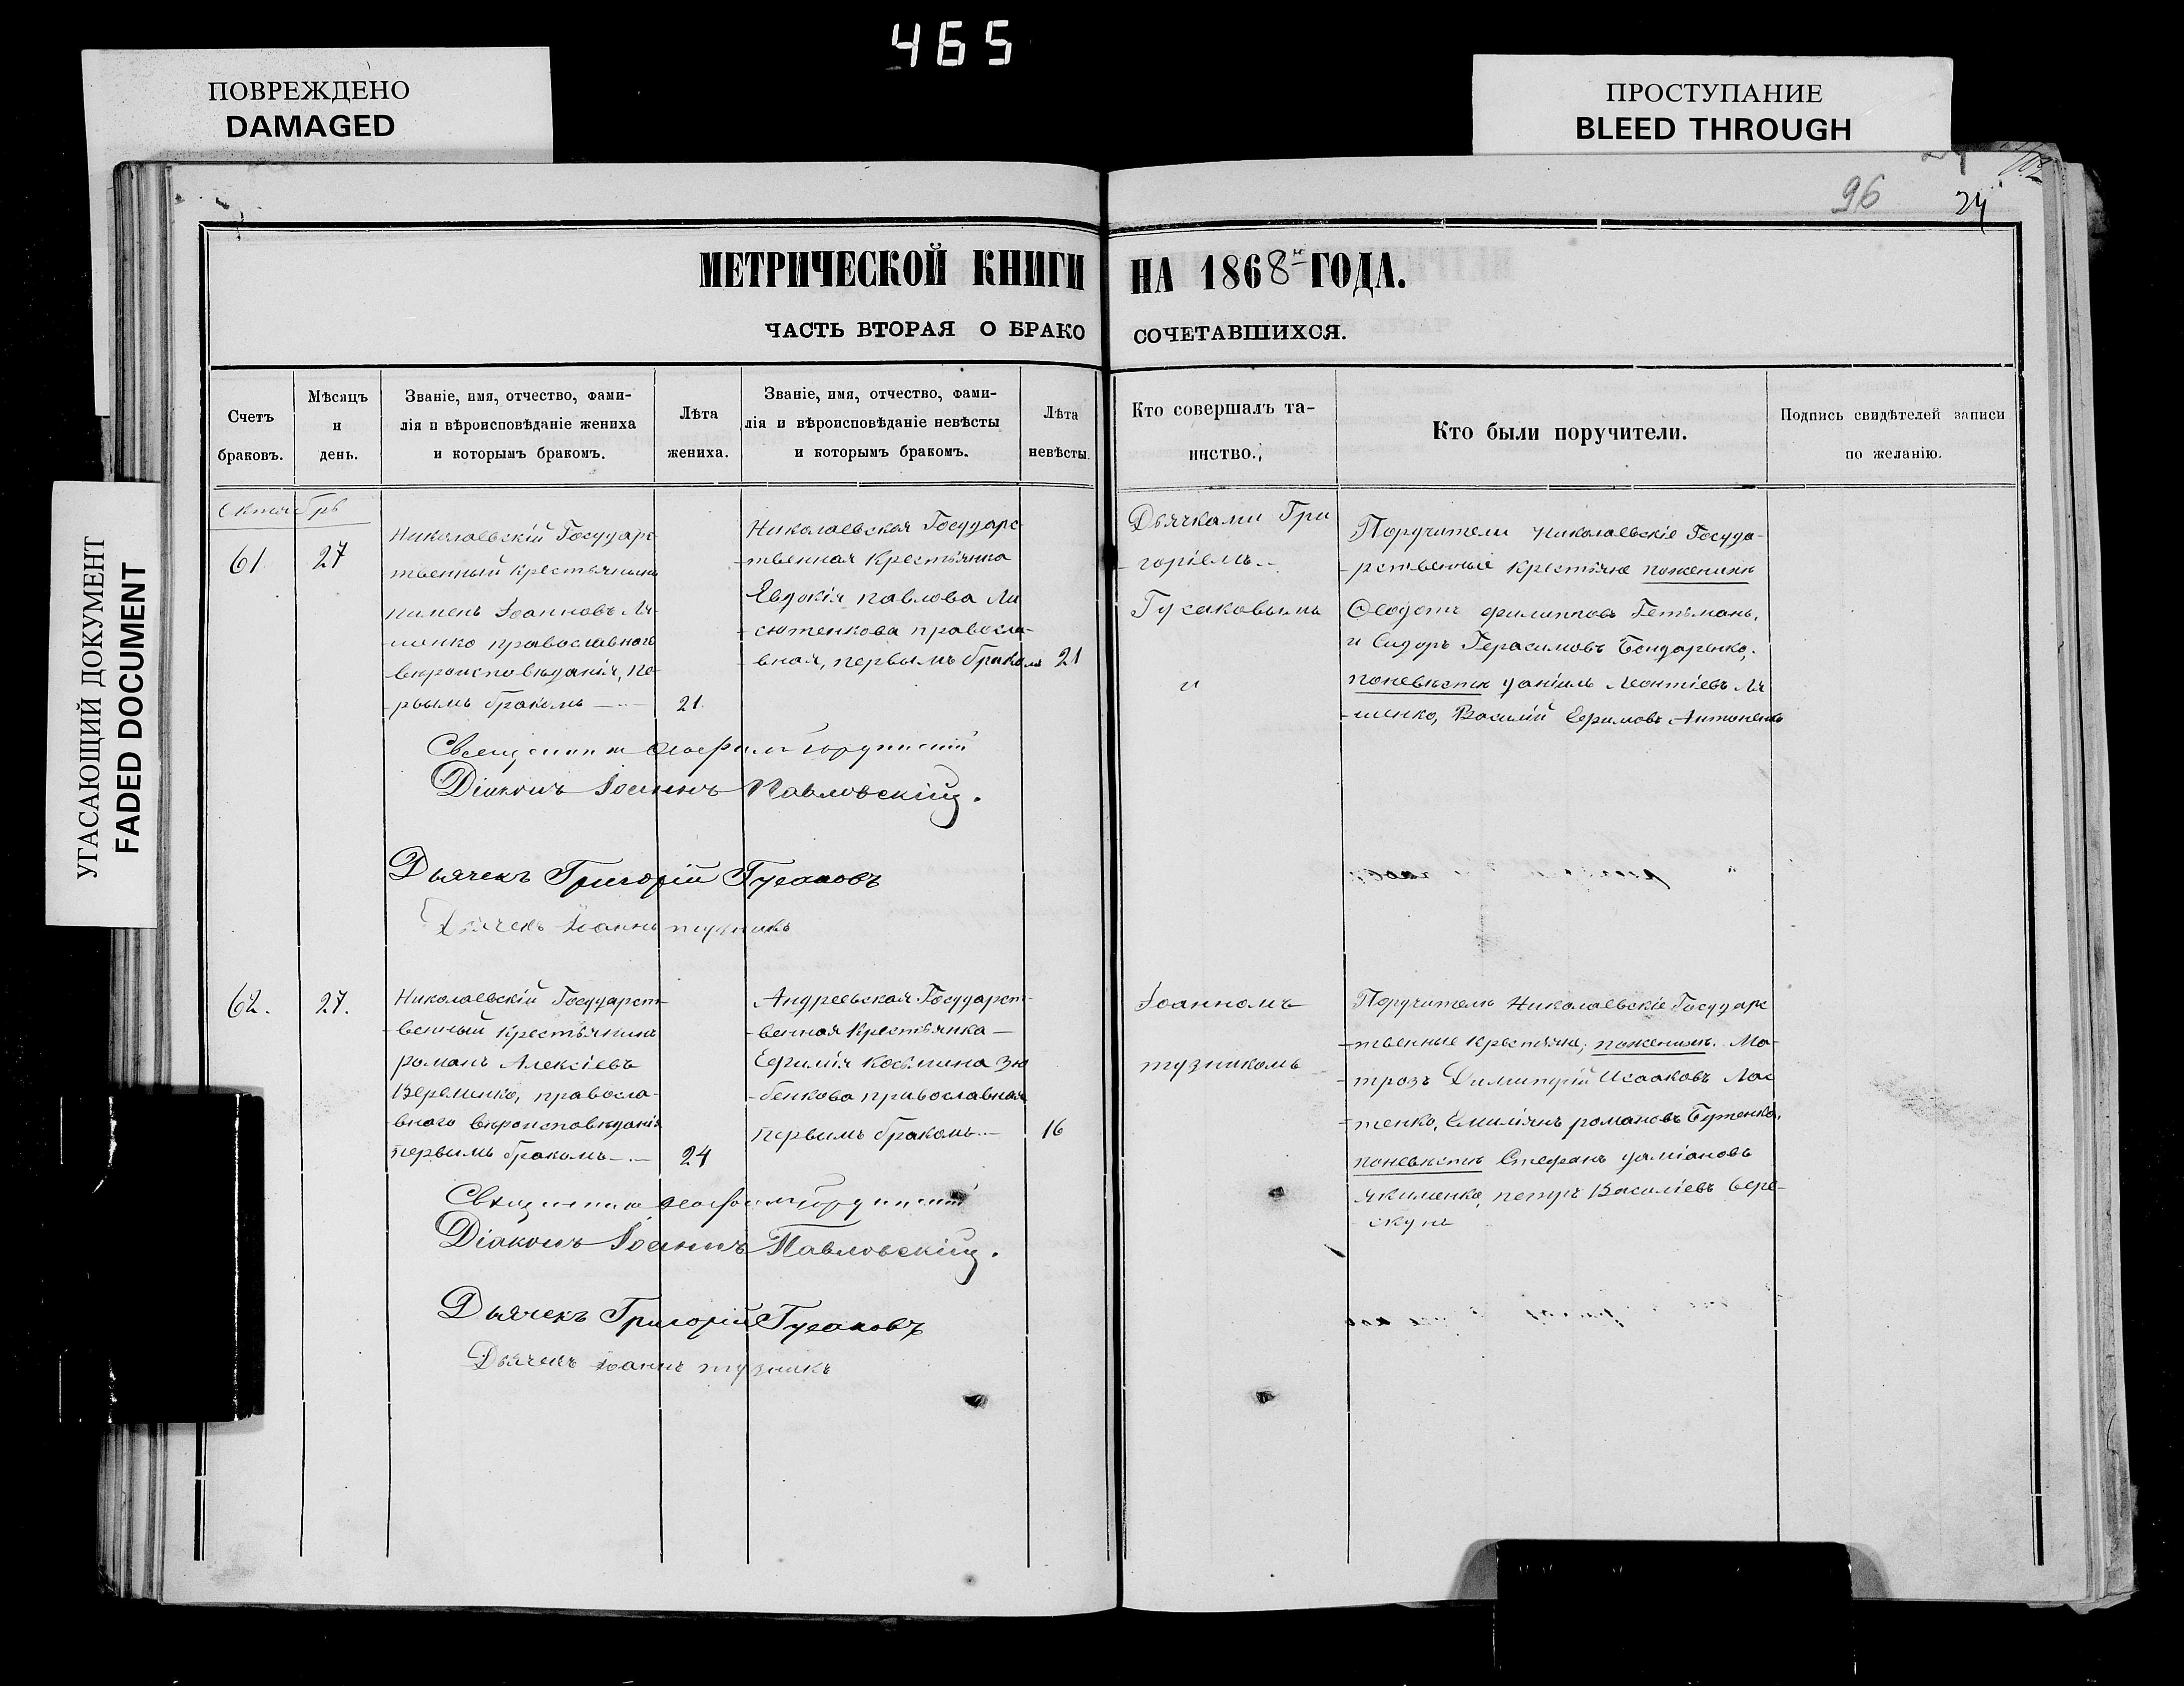 465
ПОВРЕЖДЕНО
DAMAGED
ПРОСТУПАНИЕ
BLEED THROUGH
УГАСАЮЩИЙ ДОКУМЕНТ
FADED DOCUMENT
96
24
МЕТРИЧЕСКОЙ КНИГИ НА 1868 ГОДА.
ЧАСТЬ ВТОРАЯ О БРАКО СОЧЕТАВШИХСЯ.
Счетъ
браковъ.
Мѣсяцъ
и
день.
Званіе, имя, отчество, фами-
лія и вѣроисповѣданіе жениха
и которымъ бракомъ.
Лѣта
жениха.
Званіе, имя, отчество, фами-
лія и вѣроисповѣданіе невѣсты
и которымъ бракомъ.
Лѣта
невѣсты.
Кто совершалъ та-
инство.
Кто были поручители.
Подпись свидѣтелей записи
по желанію.
Октябрь
61
27
Николаевскій Государс
твенный крестьянинъ
пименъ Іоанновъ Ля-
шенко православнаго
вѣроисповѣданія, пе-
рвымъ бракомъ
21.
Николаевская Государс
твенная крестьянка
Евдокія павлова Ли
сютенкова правосла-
вная, первымъ бракомъ
21
Дьячками Гри
горіемъ
Гусаковымъ
и
Поручители Николаевскіе Госуда-
рственные крестьяне поженихѣ
Ѳеодотъ филипповъ Гетьманъ,
и Сидоръ Герасимовъ Бондаренко,
поневѣстѣ даніилъ Леонтіевъ Ля
шенко, Василій Ефимовъ Антоненко
Священникъ
Діаконъ Іоаннъ Павловскій.
Дьячекъ Григорій Гусаковъ
Дьячекъ Іоаннъ тузникъ
62.
27.
Николаевскій Государст-
венный крестьянинъ
романъ Алексіевъ
Веременко, правосла-
внаго вѣроисповѣданія
первымъ бракомъ
24
Андреевская Государст-
венная крестьянка
Ефимія косьмина Зю
бенкова православная
первымъ бракомъ
16
Іоанномъ
тузникомъ
Поручители Николаевскіе Государс
твенные крестьяне, поженихѣ. Ма-
трозъ Димитрій Исааковъ Лас
тенко, Емиліянъ романовъ Бутенко,
поневѣстѣ Стефанъ даміановъ
якименко, петръ Василіевъ Бере-
скунъ
Священникъ
Діаконъ Іоаннъ Павловскій.
Дьячекъ Григорій Гусаковъ
Дьячекъ Іоаннъ тузникъ